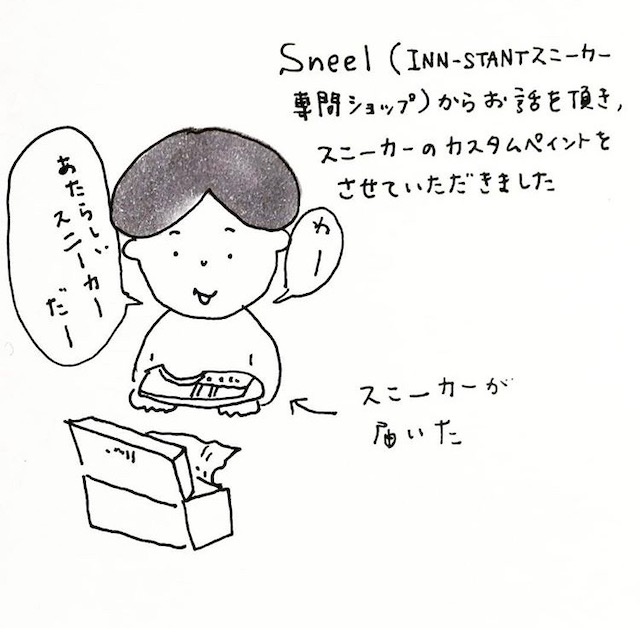 Sneel (INN-STANTスニーカー
専門ショップ)からお話を頂き,
スニーカーのカスタムペイントを
させていただきました
わー
あたらしい
スニーカー
だー
スニーカーが
届いた